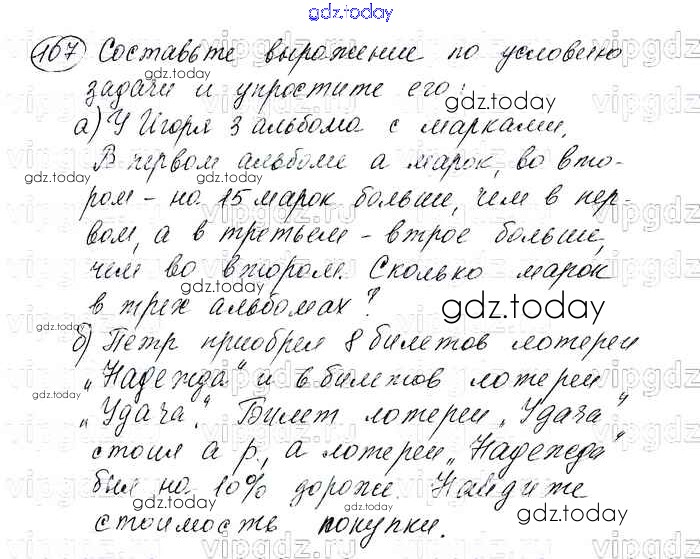 gdz.today
167 Составьте выражение по условию
задачи и упростите его:
gdz.today
а) У Игоря 3 альбома с марками.
В первом альбоме а марок, во вто-
gdz.today
ром – на 15 марок больше, чем в пер-
вом, а в третьем – втрое больше,
чем во втором. Сколько марок
в трех альбомах?
gdz.today
б) Петр приобрел 8 билетов лотереи
„Надежда" и 6 билетов лотереи
gdz.today
„Удача". Билет лотереи „Удача"
стоил а р., а лотереи „Надежда"
был на 10% дороже. Найдите
gdz.today
стоимость покупки.